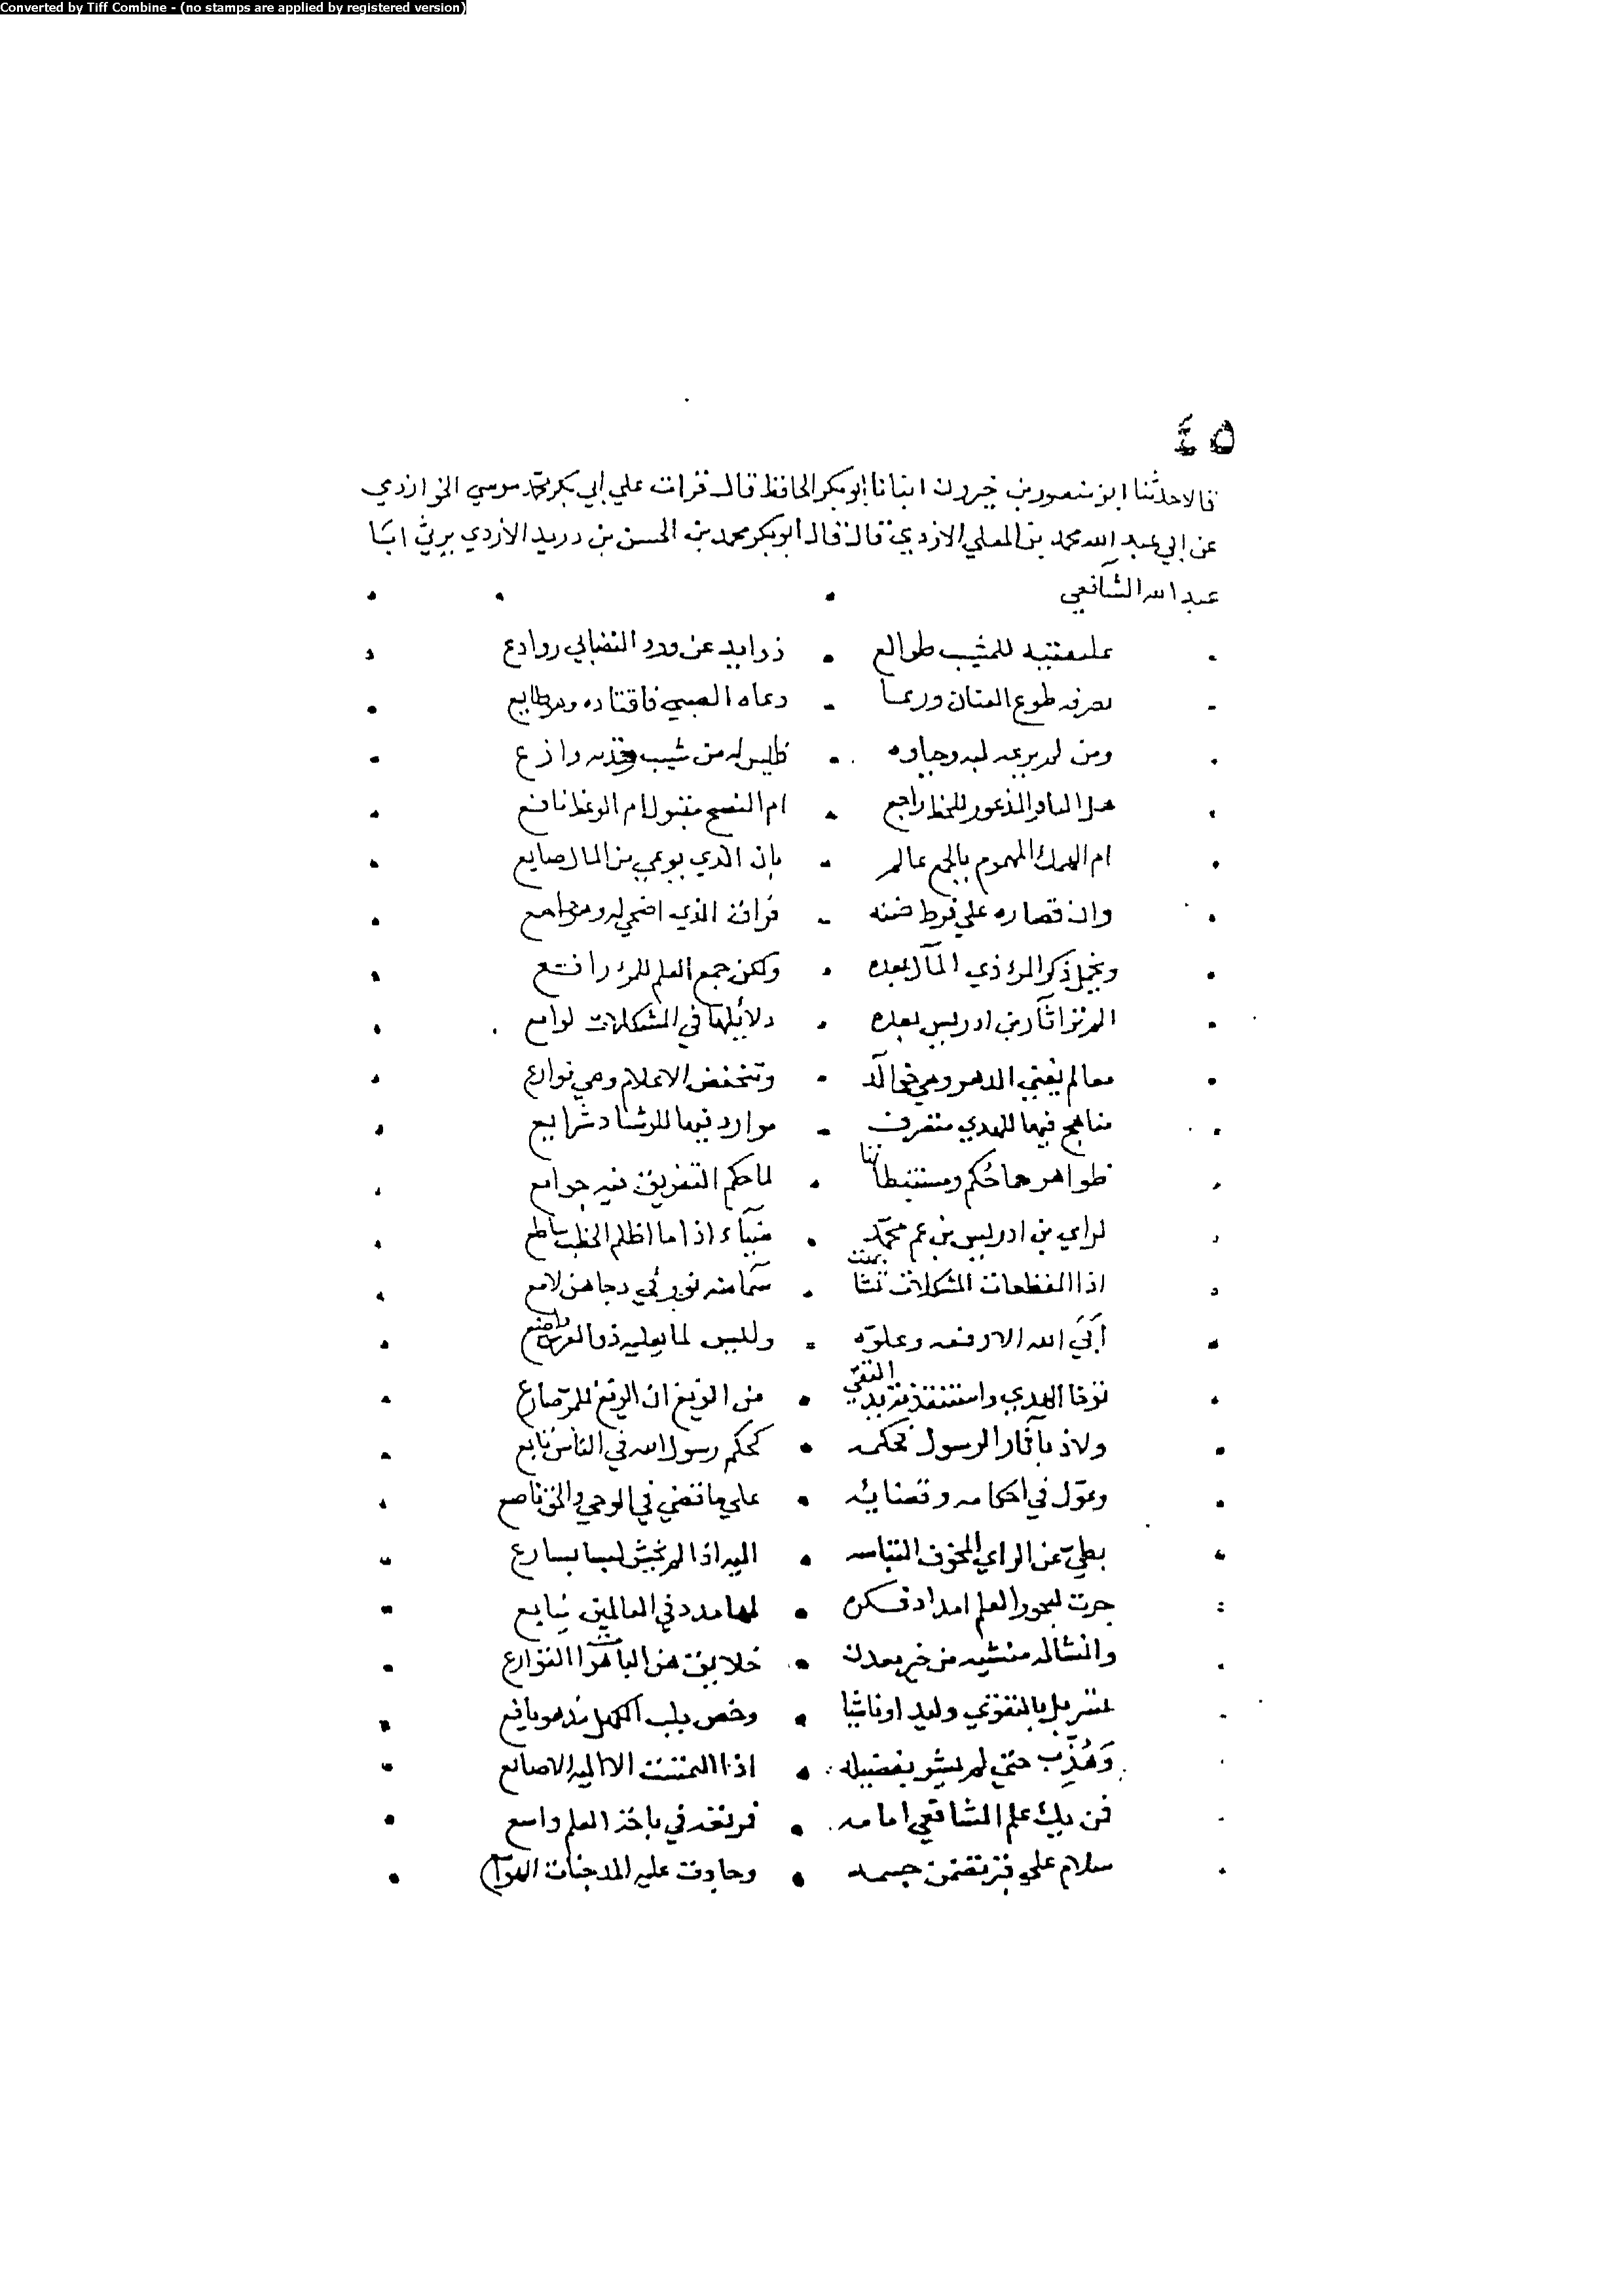 Converted by Tiff Combine - (no stamps are applied by registered version)
٤٥
قالا حدثنا ابو منصور بن خيرون انبانا ابو بكر الحافظ قال قرات علي ابي بكر محمد موسي الخوارزمي
عن ابي عبد الله محمد بن المعلي الازدي قال قال ابو بكر محمد بن الحسن بن دريد الازدي يرثي ابا
عبد الله الشافعي
بملتفتيه للمشيب طوالع ذوايد عن ورد التصابي روادع
تصرفه طوع العنان وربما دعاه الصبي فاقتاده وهو طايع
ومن لم يزعه لبه وحياوه فليس له من شيب فوديه وازع
هل النافر المذعور للحظ راجع ام النصح مقبول ام الوعظ نافع
ام الهمك المهموم بالجمع عالم بان الذي يوعي من المال ضايع
وان قصاره علي فرط ضنه فراق الذي اضحي له وهو جامع
ويخمل ذكر المرء ذي المال بعده ولكن جمع العلم للمرء رافع
الم تر اثار بن ادريس بعده دلائلها في المشكلات لوامع
معالم يفني الدهر وهي خوالد وتنخفض الاعلام وهي فوارع
مناهج فيها للهدي متصرف موارد فيها للرشاد شرايع
ظواهرها حكم ومستنبطاتها لما حكم التفريق فيه جوامع
لراي بن ادريس بن عم محمد ضياء اذا ما اظلم الخطب ساطع
اذا المفظعات المشكلات تشابهت سما منه نور في دجاهن لامع
أبي الله الا رفعه وعلوه وليس لما يعليه ذو العرش واضع
توخا الهدي واستنقذته يد التقي من الزيغ ان الزيغ للمرء صارع
ولاذ بآثار الرسول فحكمه كحكم رسول الله في الناس تابع
وعول في احكامه وقضائه علي ما قضي في الوحي والحق ناصع
بطيء عن الراي المخوف التباسه اليه اذا لم يخش لبسا يسارع
جرت لبحور العلم امداد فكره لها مدد في العالمين يتابع
وانشا له منشيه من خير معدن خلايق هن الباهرات الفوارع
تسربل بالتقوي وليدا وناشيا وخص بلب الكهل مذ هو يافع
وهذب حتي لم يشر بفضيلة اذا التمست الا اليه الاصابع
فمن يك علم الشافعي امامه فمرتعه في باحة العلم واسع
سلام علي قبر تضمن جسمه وجادت عليه المدجنات الهوامع